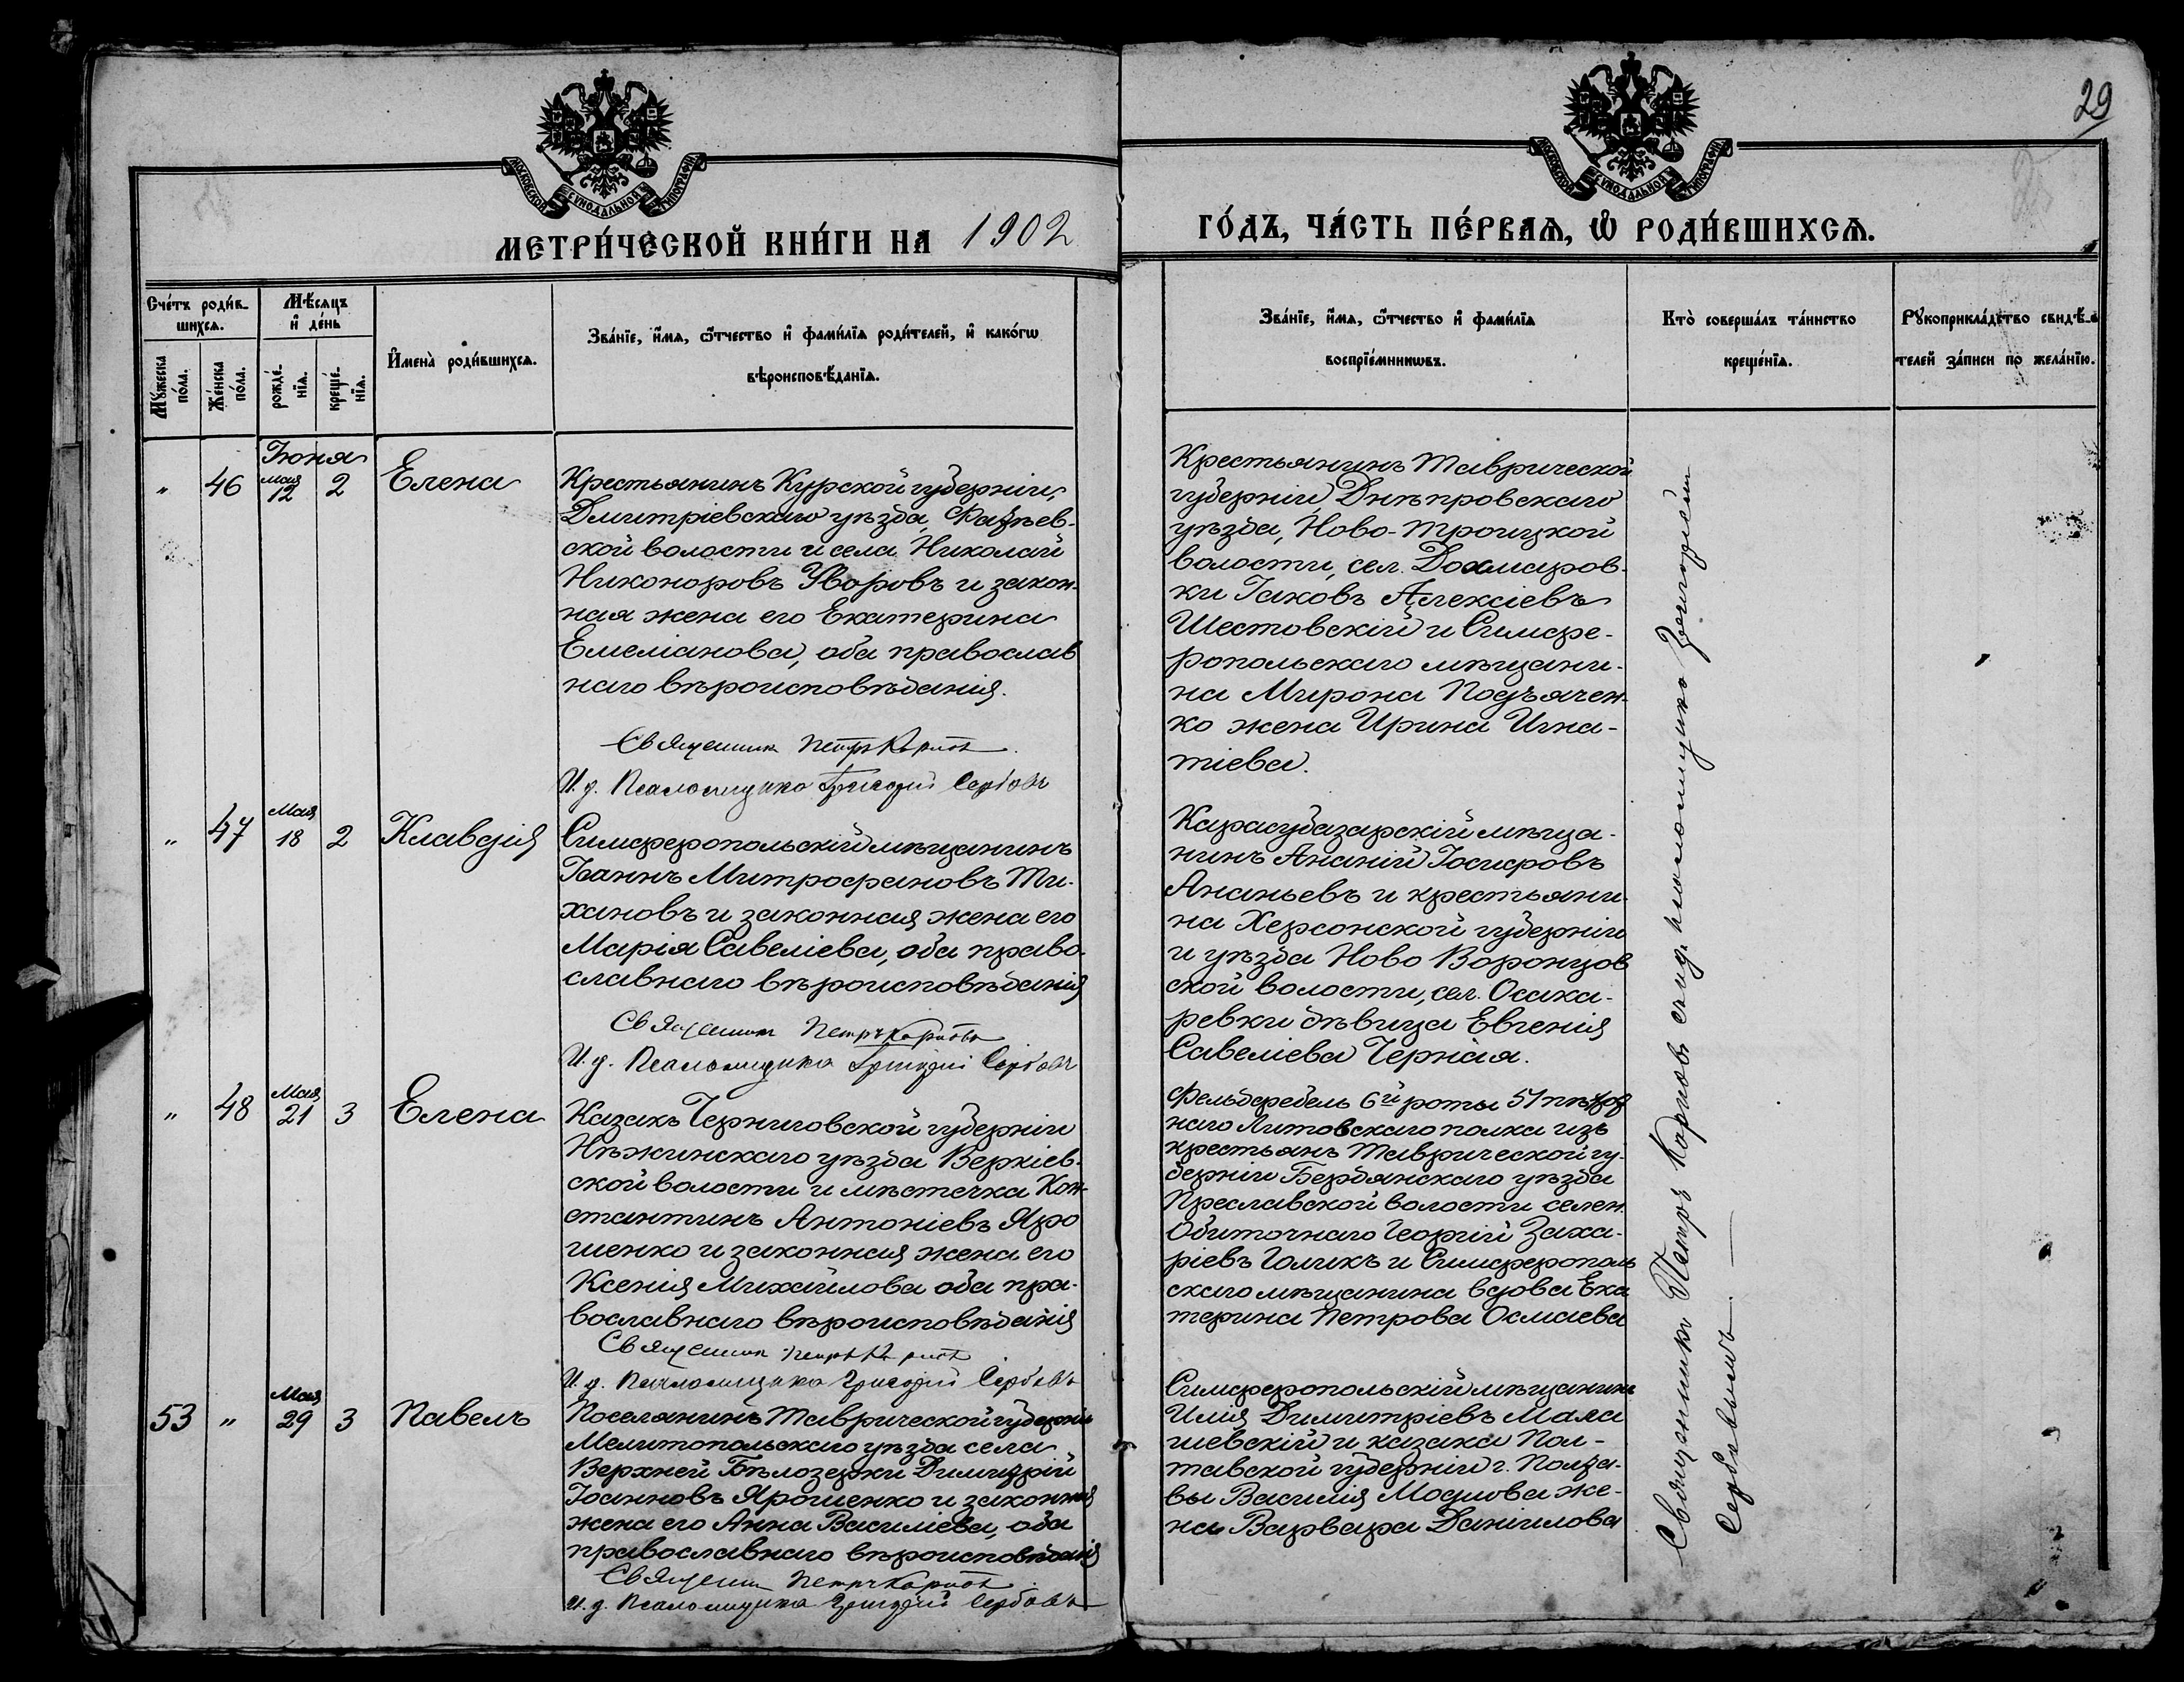 29
МОСКОВСКОЙ СѴНОДАЛЬНОЙ ТИПОГРАФІИ
МОСКОВСКОЙ СѴНОДАЛЬНОЙ ТИПОГРАФІИ
МЕТРИ́ЧЕСКОЙ КНИ́ГИ НА 1902
ГО́ДЪ, ЧА́СТЬ ПЕ́РВАѦ, Ѡ҆ РОДИ́ВШИХСѦ.
Сче́тъ роди́в-
шихсѧ.
Мѣ́сѧцъ
и҆ де́нь
Мꙋ́жеска
по́ла.
Же́нска
по́ла.
рожде́-
нїѧ.
креще́-
нїѧ.
И҆мена̀ роди́вшихсѧ.
Зва́нїе, и҆́мѧ, ѻ҆́тчество и҆ фами́лїѧ роди́телей, и҆ како́гѡ
вѣроисповѣ́данїѧ.
Зва́нїе, и҆́мѧ, ѻ҆́тчество и҆ фами́лїѧ
воспрїе́мникѡвъ.
Кто̀ соверша́лъ та́инство
креще́нїѧ.
Рꙋкоприкла́дство свидѣ́-
телей за́писи по жела́нїю.
Іюня
" 46 мая 12 2 Елена
Крестьянинъ Курской губерніи,
Дмитріевскаго уѣзда,
ской волости и села Николай
Никоноровъ Уворовъ и закон-
ная жена его Екатерина
Емеліанова, оба православ
наго вѣроисповѣданія.
Священникъ Петръ Карповъ
И. д. Псаломщика Григорій Сербовъ
Крестьянинъ Таврической
губерніи, Днѣпровскаго
уѣзда, Ново-Троицкой
волости, сел.
ки Іаковъ Алексіевъ
Шестовскій и Симфе-
ропольскаго мѣщани-
на Мирона Подъячен-
ко жена Ирина Игна-
тіева.
" 47 Мая 18 2 Клавдія
Симферопольскій мѣщанинъ
Іоаннъ Митрофановъ Ти-
хановъ и законная жена его
Марія Савеліева, оба право-
славнаго вѣроисповѣданія
Священникъ Петръ Карповъ
И. д. Псаломщика Григорій Сербовъ
Карасубазарскій мѣща-
нинъ Ананій Іосифовъ
Ананьевъ и крестьяни-
на Херсонской губерніи
и уѣзда Ново Воронцов
ской волости, сел. Осока-
ревки дѣвица Евгенія
Савеліева Черная.
" 48 Мая 21 3 Елена
Казакъ Черниговской губерніи
Нѣжинскаго уѣзда Веркіев-
ской волости и мѣстечка Кон-
стантинъ Антоніевъ Яро
шенко и законная жена его
Ксенія Михайлова оба пра-
вославнаго вѣроисповѣданія
Священникъ Петръ Карповъ
И. д. Псаломщика Григорій Сербовъ
Фельдфебель 6й роты 51 пѣхот
наго Литовскаго полка изъ
крестьянъ Таврической гу-
берніи Бердянскаго уѣзда
Преславской волости селен.
Обиточнаго Георгій Заха-
ріевъ Голикъ и Симферополь
скаго мѣщанина вдова Ека
терина Петрова Осмаева
53 " Мая 29 3 Павелъ
Поселянинъ Таврической губерніи
Мелитопольскаго уѣзда села
Верхней Бѣлозерки Димитрій
Іоанновъ Ярошенко и законная
жена его Анна Василіева, оба
православнаго вѣроисповѣданія
Священникъ Петръ Карповъ
И. д. Псаломщика Григорій Сербовъ
Симферопольскій мѣщанинъ
Илія Димитріевъ Мала
шевскій и казака Пол-
тавской губерніи г. Полта-
вы Василія же-
на Варвара Даніилова
Священникъ Петръ Карповъ съ и. д. псаломщика Григоріемъ
Сербовымъ.